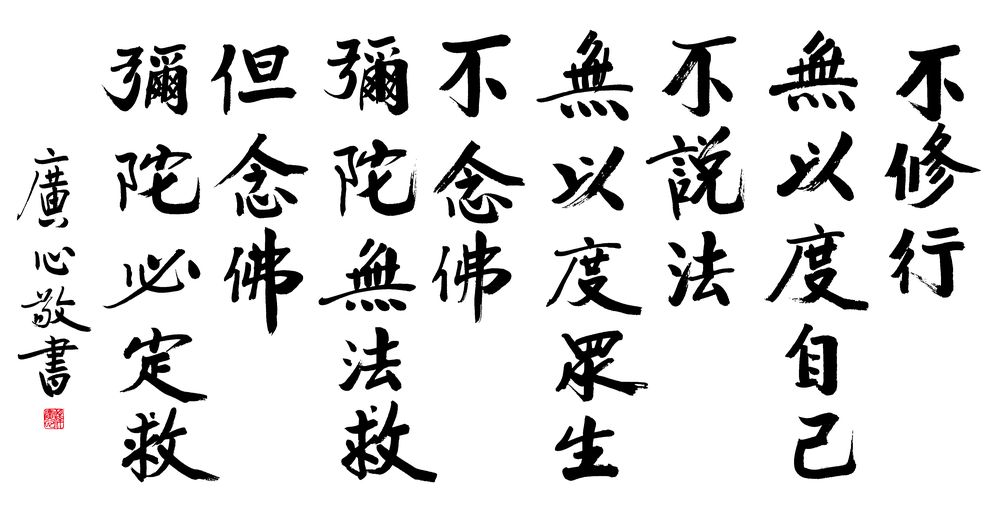 不修行
無以度自己
不説法
無以度眾生
不念佛
彌陀無法救
但念佛
彌陀必定救
廣心敬書